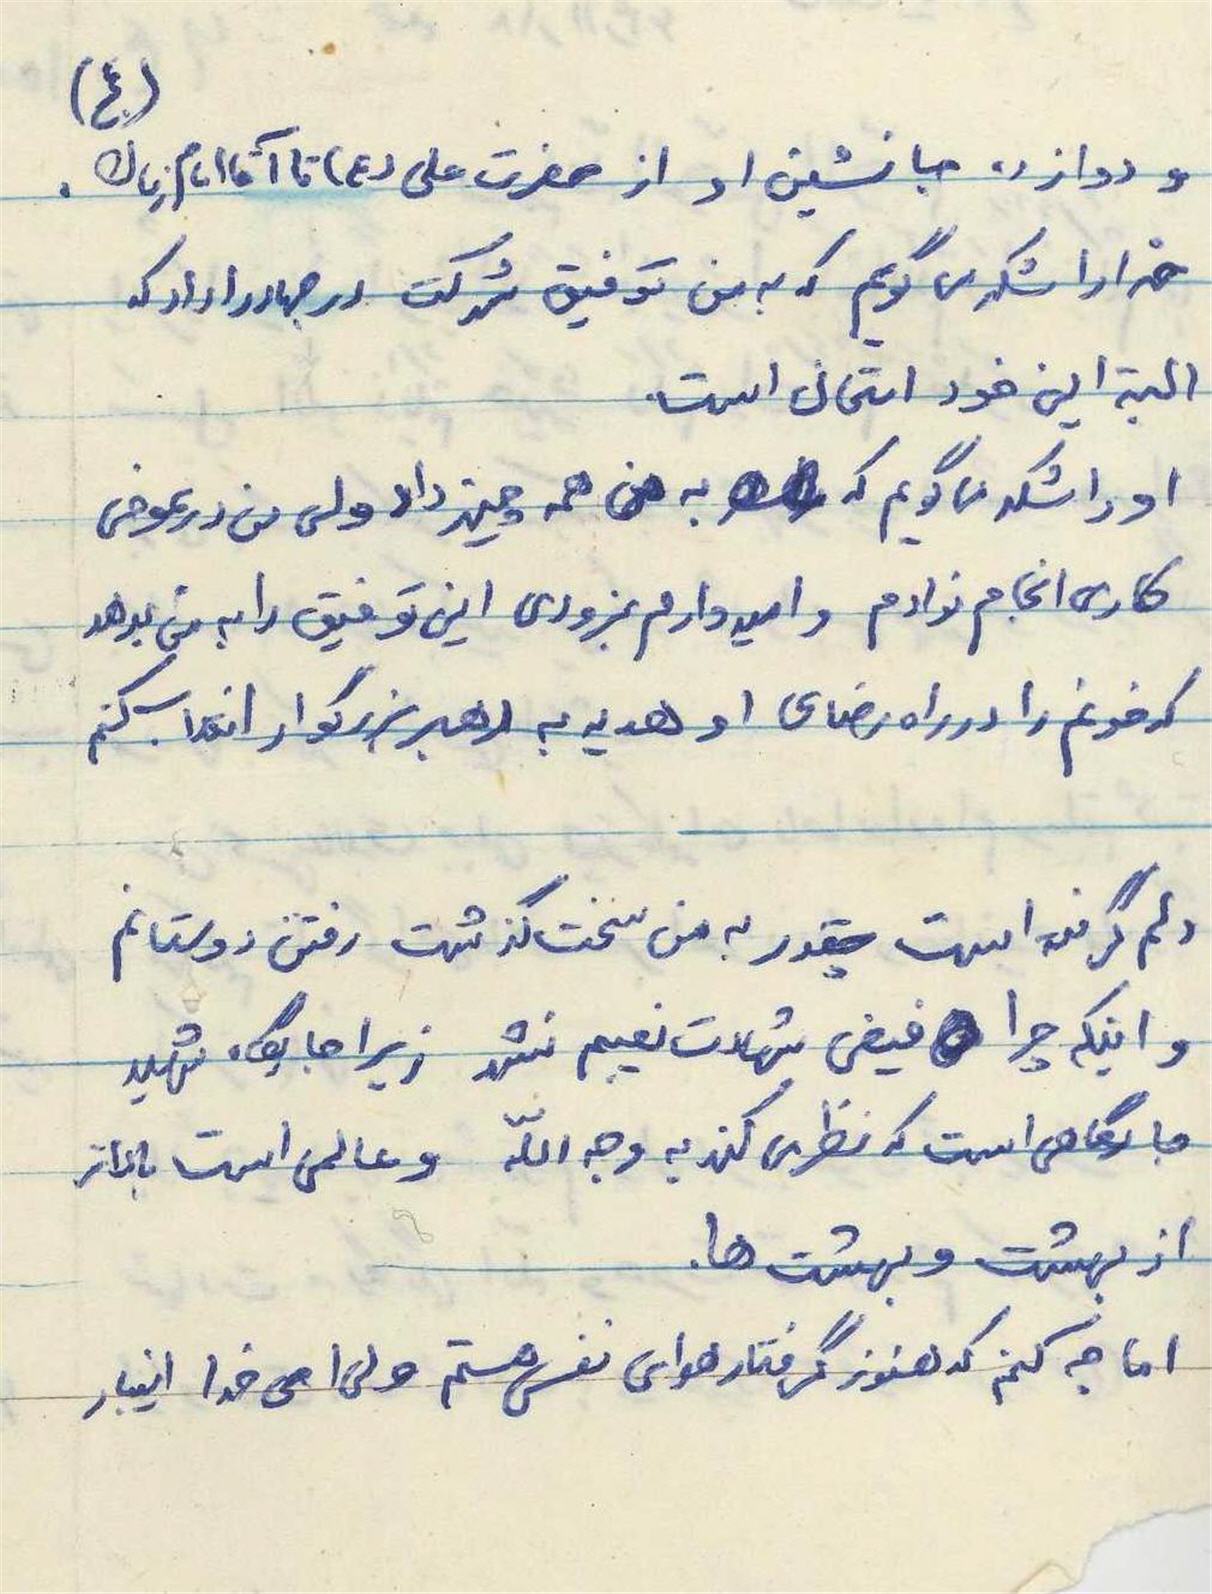 (٤)
و دوازده جانشین او از حضرت علی (ع) تا آقا امام زمان .
خدا را شکر می گویم که به من توفیق شرکت در جهاد را داد که
البته این خود امتحان است.
او را شکر می گویم که به من همه چیز داد ولی من در عوض
کاری انجام ندادم و امیدوارم بزودی این توفیق را به من بدهد
که خونم را در راه رضای او هدیه به رهبر بزرگوار انقلاب کنم
دلم گرفته است چقدر به من سخت گذشت رفتن دوستانم
و اینکه چرا فیض شهادت نصیبم نشد زیرا جایگاه شهید
جایگاهی است که نظر می کند به وجه اللّه و عالمی است بالاتر
از بهشت و بهشت ها.
اما چه کنم که هنوز گرفتار هوای نفس هستم ولی خدا اینبار